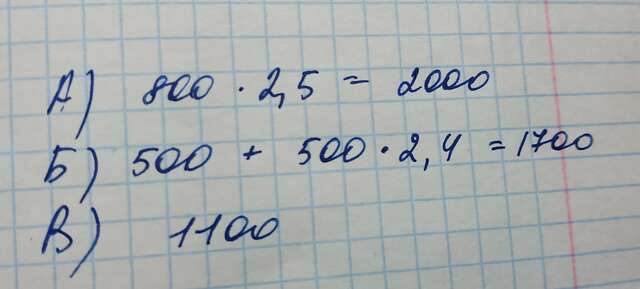 А) 800 · 2,5 = 2000
Б) 500 + 500 · 2,4 = 1700
В) 1100